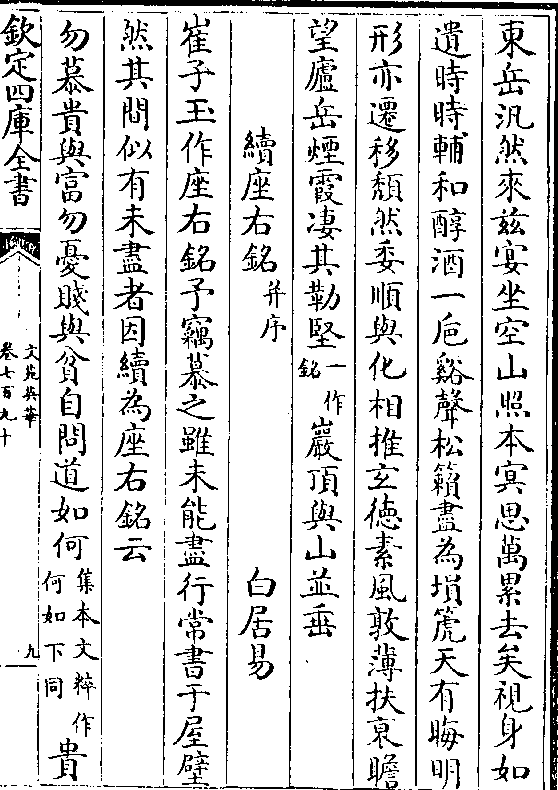 東岳汎然來兹宴坐空山照本㝠思萬累去矣視身如
遺時時輔和醇酒一巵谿聲松籟盡為塤箎天有晦明
形亦遷移頽然委順與化相推玄徳素風敦薄扶衰瞻
望廬岳煙霞凄其勒堅一作銘巖頂與山並垂
續座右銘并序 白居易
崔子玉作座右銘予竊慕之雖未能盡行常書于屋壁
然其間似有未盡者因續為座右銘云
勿慕貴與富勿憂賤與貧自問道如何集本文粹作何如下同貴
欽定四庫全書
文苑英華
卷七百九十
九